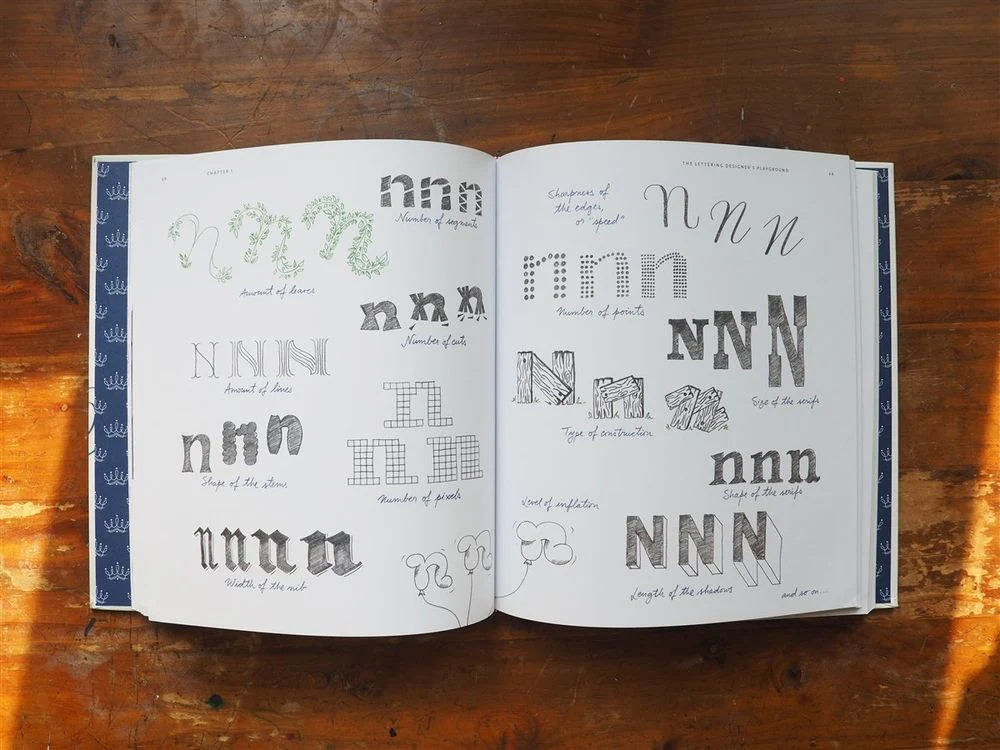 CHAPTER 1
nnn
Number of segments
nnn
Amount of leaves
nnn
Number of cuts
NNN
Amount of lines
n
nn
Number of pixels
nnn
Shape of the stems
nnnn
Width of the nib
nn
THE LETTERING DESIGNER'S PLAYGROUND
Sharpness of
the edges,
or "speed"
nnn
nnn
Number of points
NNN
Size of the serifs
Nnn
Type of construction
nnn
Shape of the serifs
Level of inflation
n
NNN
Length of the shadows
and so on...